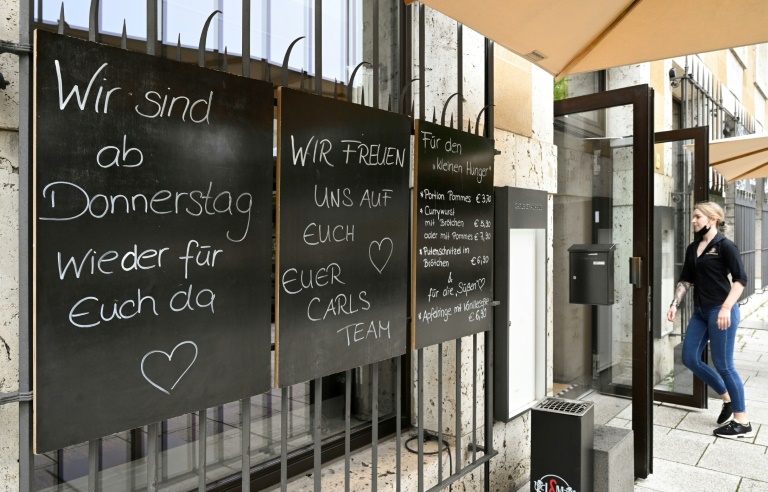 Wir sind
ab
Donnerstag
Wieder für
Euch da
WIR FREUEN
UNS AUF
EUCH
EUER
CARLS
TEAM
Für den
„kleinen Hunger"
*Portion Pommes € 3,70
*Currywurst
mit Brötchen € 5,90
oder mit Pommes € 7,90
*Putenschnitzel im
Brötchen € 6,90
&
für die „Süßen"
*Apfelringe mit Vanillesoße
€ 6,90